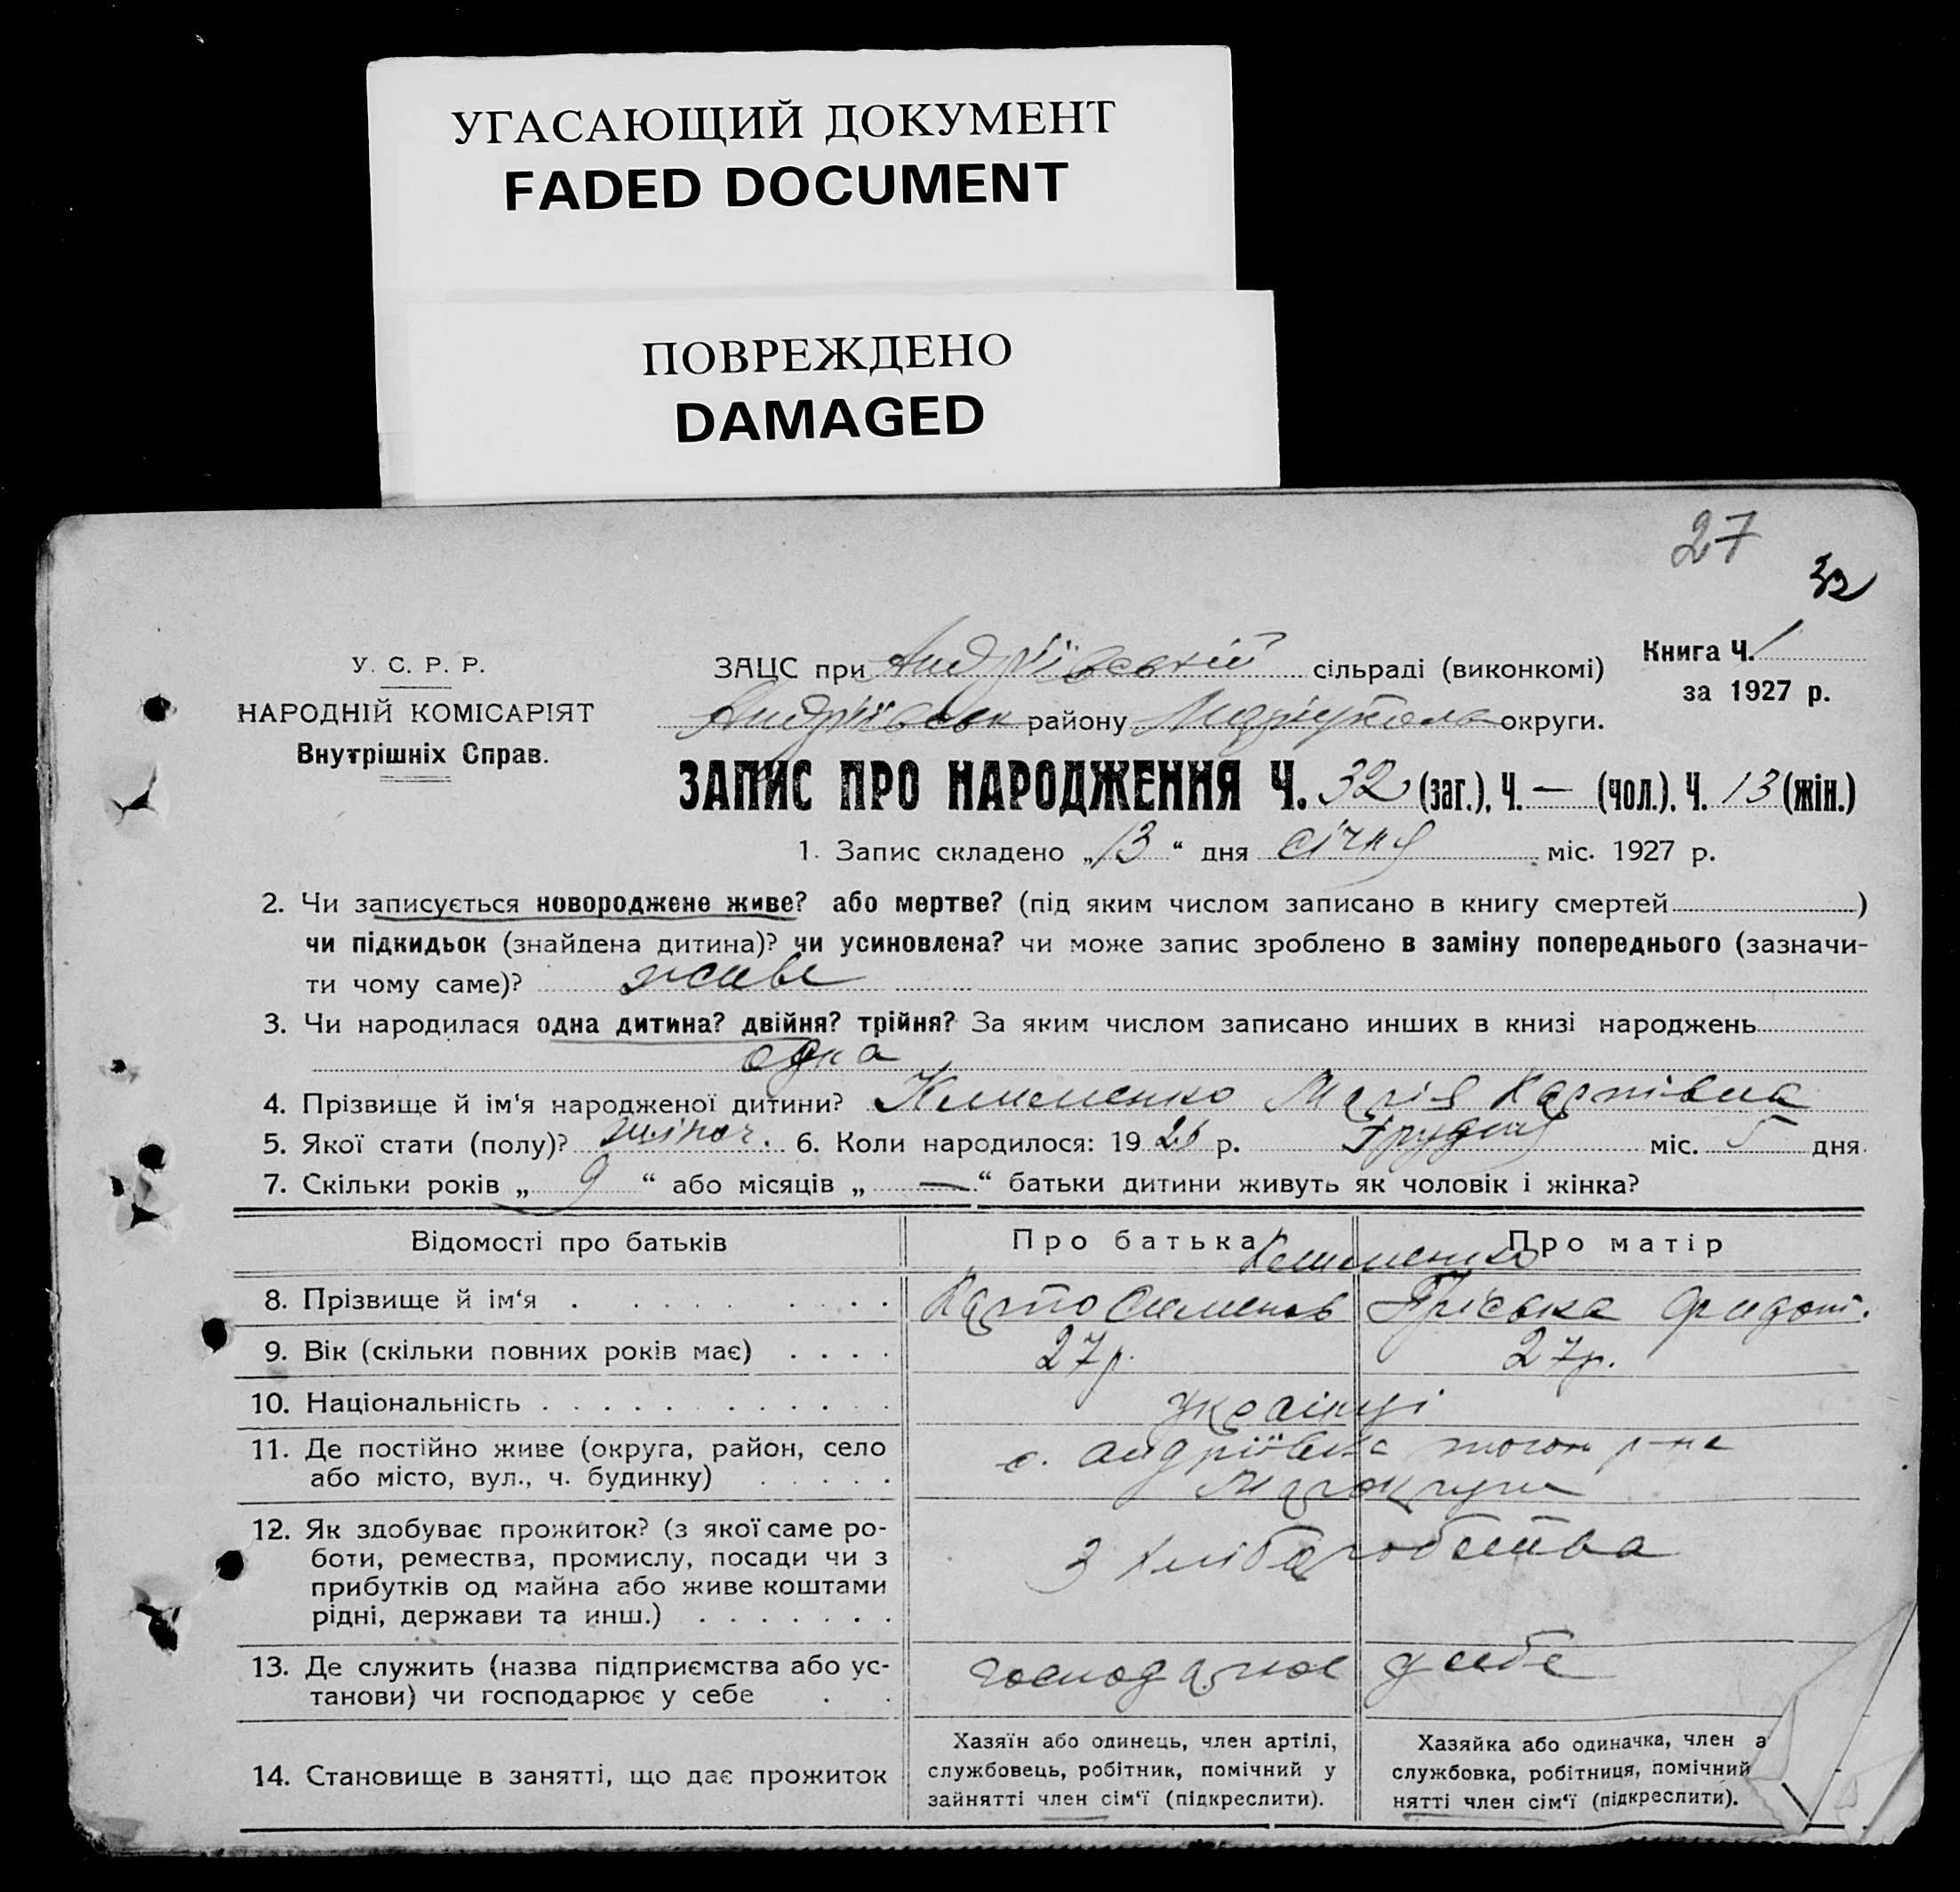 УГАСАЮЩИЙ ДОКУМЕНТ
FADED DOCUMENT
ПОВРЕЖДЕНО
DAMAGED
27
32
У. С. Р. Р.
НАРОДНІЙ КОМІСАРІЯТ
Внутрішніх Справ.
ЗАЦС при Андріївській сільраді (виконкомі)
Андріївськ району Маріупольс округи.
Книга Ч. 1
за 1927 р.
ЗАПИС ПРО НАРОДЖЕННЯ Ч. 32 (заг.), Ч. — (чол.). Ч. 13 (жін.)
1. Запис складено „13“ дня січня міс. 1927 р.
2. Чи записується новороджене живе? або мертве? (під яким числом записано в книгу смертей)
чи підкидьок (знайдена дитина)? чи усиновлена? чи може запис зроблено в заміну попереднього (зазначи-
ти чому саме)? живе
3. Чи народилася одна дитина? двійня? трійня? За яким числом записано инших в книзі народжень
одна
4. Прізвище й ім‘я народженої дитини? Клименко Марія Карпівна
5. Якої стати (полу)? жіноч. 6. Коли народилося: 1926 р. Грудня міс. 5 дня
7. Скільки років „ 9 “ або місяців „ — “ батьки дитини живуть як чоловік і жінка?
Відомості про батьків
Про батька
Про матір
Клименко
8. Прізвище й ім‘я . . . . . . . .
Карпо Семенов
Пріська
9. Вік (скільки повних років має) . . . .
27 р.
27 р.
10. Національність . . . . . . . . . . . .
українці
11. Де постійно живе (округа, район, село
або місто, вул., ч. будинку) . . . . .
с. Андріївка того ж р-на
Марокруги
12. Як здобуває прожиток? (з якої саме ро-
боти, ремества, промислу, посади чи з
прибутків од майна або живе коштами
рідні, держави та инш.) . . . . . . .
З хліборобства
13. Де служить (назва підприємства або ус-
танови) чи господарює у себе . .
господарює у себе
14. Становище в занятті, що дає прожиток
Хазяїн або одинець, член артілі,
службовець, робітник, помічний у
зайнятті член сім‘ї (підкреслити).
Хазяйка або одиначка, член а
службовка, робітниця, помічний
нятті член сім‘ї (підкреслити).